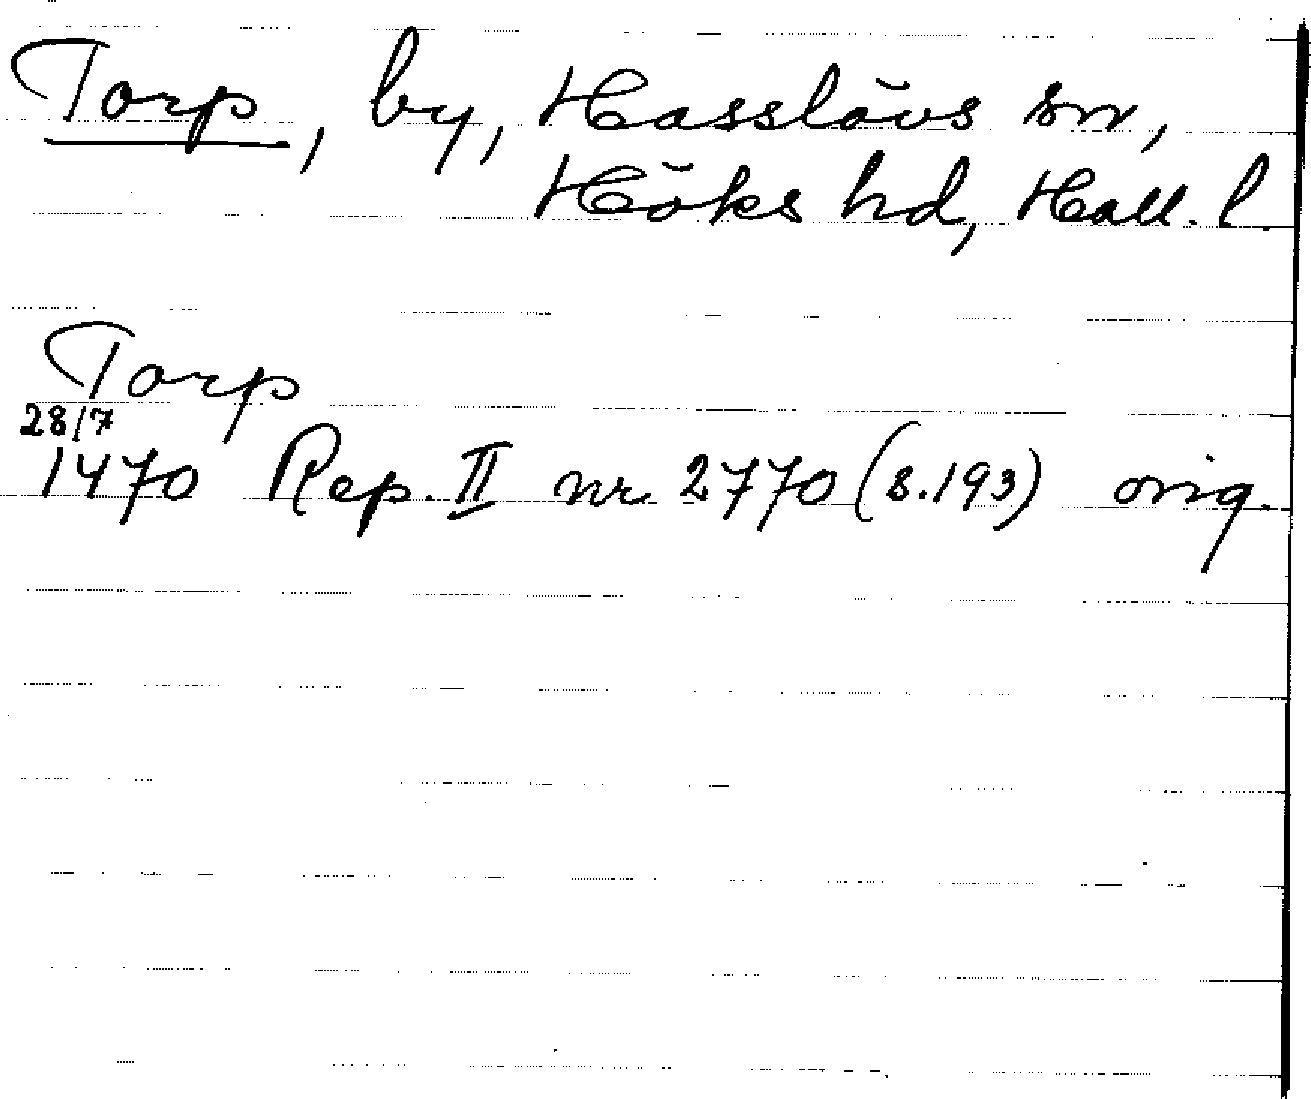 Torp, by, Hasslövs sn,
Höks hd, Hall. l.
Torp
28/7
1470 Rep. II nr 2770 (s.193) orig.